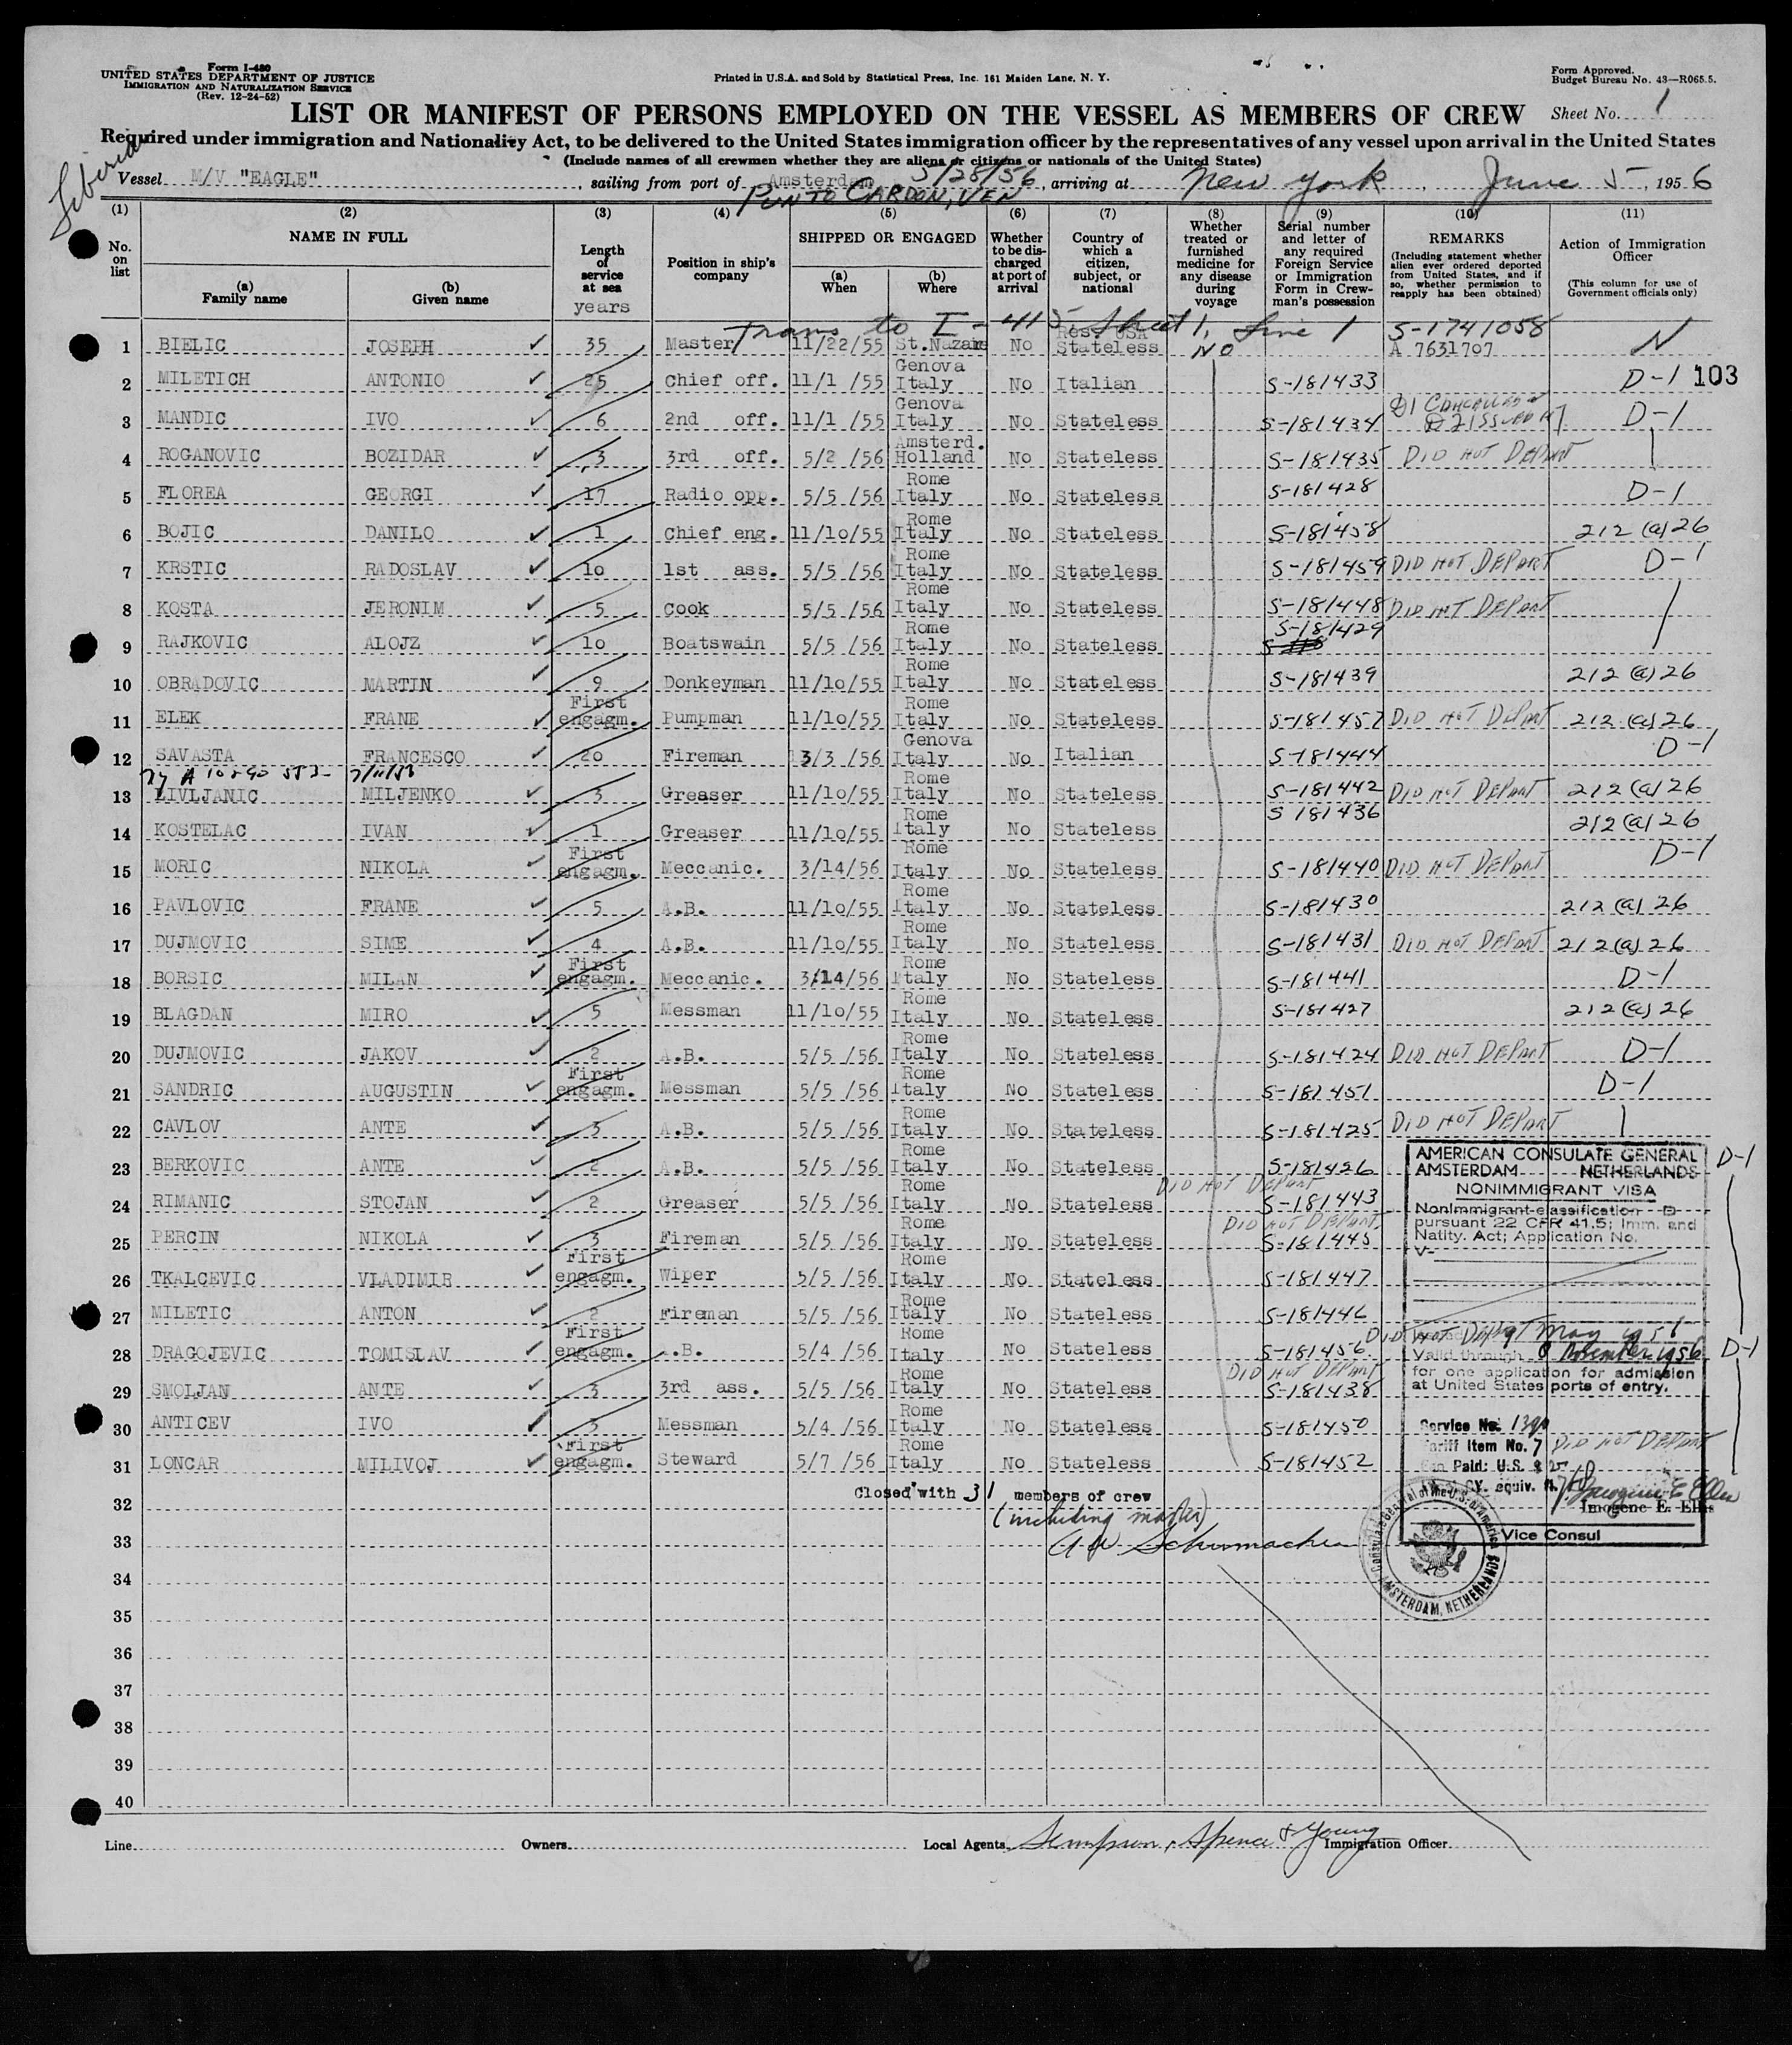 Form I-480
UNITED STATES DEPARTMENT OF JUSTICE
IMMIGRATION AND NATURALIZATION SERVICE
(Rev. 12-24-52)
Printed in U.S.A. and Sold by Statistical Press, Inc. 161 Maiden Lane, N. Y.
Form Approved.
Budget Bureau No. 43—R065.5.
LIST OR MANIFEST OF PERSONS EMPLOYED ON THE VESSEL AS MEMBERS OF CREW
Sheet No. 1
Required under immigration and Nationality Act, to be delivered to the United States immigration officer by the representatives of any vessel upon arrival in the United States
(Include names of all crewmen whether they are aliens or citizens or nationals of the United States)
Liberian
Vessel M/V "EAGLE", sailing from port of Amsterdam 5/28/56, arriving at New York, June 5, 1956
PUNTO CARDON, VEN
(1) (2) (3) (4) (5) (6) (7) (8) (9) (10) (11)
No. on list
NAME IN FULL
(a) Family name
(b) Given name
Length of service at sea
years
Position in ship's company
SHIPPED OR ENGAGED
(a) When
(b) Where
Whether to be discharged at port of arrival
Country of which a citizen, subject, or national
Whether treated or furnished medicine for any disease during voyage
Serial number and letter of any required Foreign Service or Immigration Form in Crewman's possession
REMARKS
(Including statement whether alien ever ordered deported from United States, and if so, whether permission to reapply has been obtained)
Action of Immigration Officer
(This column for use of Government officials only)
Trans to I-415, Sheet 1, Line 1
1 BIELIC JOSEPH 35 Master 11/22/55 St.Nazaire No Res. USA Stateless NO S-1741058 A 7631707 N
2 MILETICH ANTONIO 25 Chief off. 11/1 /55 Genova Italy No Italian S-181433 D-1 103
3 MANDIC IVO 6 2nd off. 11/1 /55 Genova Italy No Stateless S-181434 D1 CANCELLED D2 ISSUED D-1
4 ROGANOVIC BOZIDAR 3 3rd off. 5/2 /56 Amsterd. Holland No Stateless S-181435 DID NOT DEPART
5 FLOREA GEORGI 17 Radio opp. 5/5 /56 Rome Italy No Stateless S-181428 D-1
6 BOJIC DANILO 1 Chief eng. 11/10/55 Rome Italy No Stateless S-181458 212 (a) 26
7 KRSTIC RADOSLAV 10 1st ass. 5/5 /56 Rome Italy No Stateless S-181459 DID NOT DEPART D-1
8 KOSTA JERONIM 5 Cook 5/5 /56 Rome Italy No Stateless S-181448 DID NOT DEPART
9 RAJKOVIC ALOJZ 10 Boatswain 5/5 /56 Rome Italy No Stateless S-181429
10 OBRADOVIC MARTIN 9 Donkeyman 11/10/55 Rome Italy No Stateless S-181439 212 (a) 26
11 ELEK FRANE First engagm. Pumpman 11/10/55 Rome Italy No Stateless S-181457 DID NOT DEPART 212 (a) 26
12 SAVASTA FRANCESCO 20 Fireman 3/3 /56 Genova Italy No Italian S-181444 D-1
13 LIVLJANIC MILJENKO 3 Greaser 11/10/55 Rome Italy No Stateless S-181442 DID NOT DEPART 212 (a) 26
14 KOSTELAC IVAN 1 Greaser 11/10/55 Rome Italy No Stateless S 181436 212 (a) 26
15 MORIC NIKOLA First engagm. Meccanic. 3/14/56 Rome Italy No Stateless S-181440 DID NOT DEPART D-1
16 PAVLOVIC FRANE 5 A.B. 11/10/55 Rome Italy No Stateless S-181430 212 (a) 26
17 DUJMOVIC SIME 4 A.B. 11/10/55 Rome Italy No Stateless S-181431 DID NOT DEPART 212 (a) 26
18 BORSIC MILAN First engagm. Meccanic. 3/14/56 Rome Italy No Stateless S-181441 D-1
19 BLAGDAN MIRO 5 Messman 11/10/55 Rome Italy No Stateless S-181427 212 (a) 26
20 DUJMOVIC JAKOV 2 A.B. 5/5 /56 Rome Italy No Stateless S-181424 DID NOT DEPART D-1
21 SANDRIC AUGUSTIN First engagm. Messman 5/5 /56 Rome Italy No Stateless S-181451 D-1
22 CAVLOV ANTE 3 A.B. 5/5 /56 Rome Italy No Stateless S-181425 DID NOT DEPART
23 BERKOVIC ANTE 2 A.B. 5/5 /56 Rome Italy No Stateless S-181426 D-1
24 RIMANIC STOJAN 2 Greaser 5/5 /56 Rome Italy No Stateless DID NOT DEPART S-181443
25 PERCIN NIKOLA 3 Fireman 5/5 /56 Rome Italy No Stateless DID NOT DEPART S-181445
26 TKALCEVIC VLADIMIR First engagm. Wiper 5/5 /56 Rome Italy No Stateless S-181447
27 MILETIC ANTON 2 Fireman 5/5 /56 Rome Italy No Stateless S-181446
28 DRAGOJEVIC TOMISLAV First engagm. .B. 5/4 /56 Rome Italy No Stateless S-181456 DID NOT DEPART D-1
29 SMOLJAN ANTE 3 3rd ass. 5/5 /56 Rome Italy No Stateless DID NOT DEPART S-181438
30 ANTICEV IVO 3 Messman 5/4 /56 Rome Italy No Stateless S-181450
31 LONCAR MILIVOJ First engagm. Steward 5/7 /56 Rome Italy No Stateless S-181452 DID NOT DEPART
AMERICAN CONSULATE GENERAL
AMSTERDAM NETHERLANDS
NONIMMIGRANT VISA
Nonimmigrant classification D
pursuant 22 CFR 41.5; Imm. and
Natlty. Act; Application No.
V-
May 1956
Valid through November 1956
for one application for admission
at United States ports of entry.
Service No. 1390
Tariff Item No. 7
Paid: U.S. $
CY. equiv.
Imogene E. Ellis
Imogene E. Ellis
Vice Consul
AMSTERDAM, NETHERLANDS
32 Closed with 31 members of crew
(including master)
33
34
35
36
37
38
39
40
Line Owners Local Agents Simpson, Spence & Young Immigration Officer